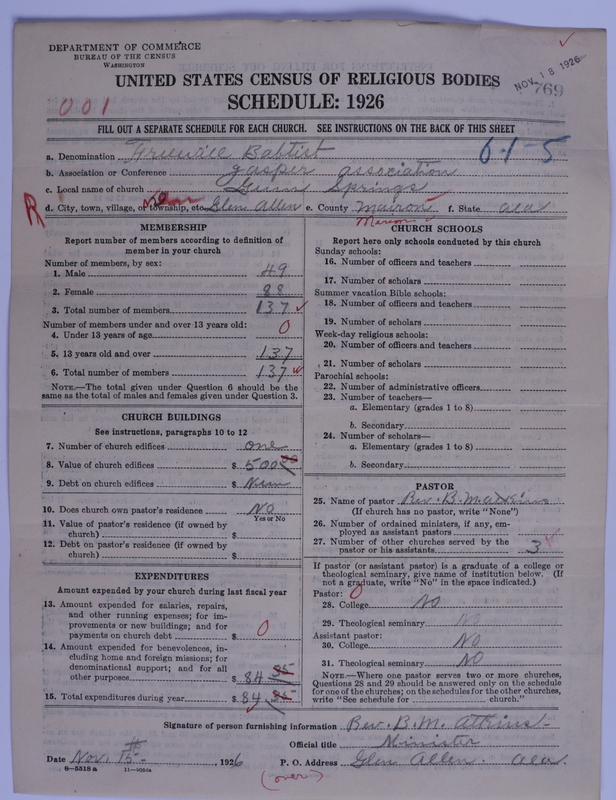 DEPARTMENT OF COMMERCE
BUREAU OF THE CENSUS
WASHINGTON
NOV 18 1926
769
UNITED STATES CENSUS OF RELIGIOUS BODIES
SCHEDULE: 1926
001
FILL OUT A SEPARATE SCHEDULE FOR EACH CHURCH. SEE INSTRUCTIONS ON THE BACK OF THIS SHEET
a. Denomination Freewill Babtist
61-5
b. Association or Conference Jasper association
c. Local name of church Guin Springs
R d. City, town, village, or township, etc. near Glen Allen e. County Mairon f. State ala
Marion
MEMBERSHIP
Report number of members according to definition of
member in your church
Number of members, by sex:
1. Male 49
2. Female 88
3. Total number of members 137
Number of members under and over 13 years old:
4. Under 13 years of age 0
5. 13 years old and over 137
6. Total number of members 137
NOTE.—The total given under Question 6 should be the
same as the total of males and females given under Question 3.
CHURCH BUILDINGS
See instructions, paragraphs 10 to 12
7. Number of church edifices one
8. Value of church edifices $ 500 00
9. Debt on church edifices $
10. Does church own pastor's residence? NO
Yes or No
11. Value of pastor's residence (if owned by
church) $
12. Debt on pastor's residence (if owned by
church) $
EXPENDITURES
Amount expended by your church during last fiscal year
13. Amount expended for salaries, repairs,
and other running expenses; for im-
provements or new buildings; and for
payments on church debt $ 0
14. Amount expended for benevolences, in-
cluding home and foreign missions; for
denominational support; and for all
other purposes $ 84 35
15. Total expenditures during year $ 84 35
CHURCH SCHOOLS
Report here only schools conducted by this church
Sunday schools:
16. Number of officers and teachers
17. Number of scholars
Summer vacation Bible schools:
18. Number of officers and teachers
19. Number of scholars
Week-day religious schools:
20. Number of officers and teachers
21. Number of scholars
Parochial schools:
22. Number of administrative officers
23. Number of teachers—
a. Elementary (grades 1 to 8)
b. Secondary
24. Number of scholars—
a. Elementary (grades 1 to 8)
b. Secondary
PASTOR
25. Name of pastor Rev. B. M. Atkins
(If church has no pastor, write "None")
26. Number of ordained ministers, if any, em-
ployed as assistant pastors
27. Number of other churches served by the
pastor or his assistants 3
If pastor (or assistant pastor) is a graduate of a college or
theological seminary, give name of institution below. (If
not a graduate, write "No" in the space indicated.)
Pastor: 0
28. College NO
29. Theological seminary No
Assistant pastor:
30. College NO
31. Theological seminary NO
NOTE.—Where one pastor serves two or more churches,
Questions 28 and 29 should be answered only on the schedule
for one of the churches; on the schedules for the other churches,
write "See schedule for church."
Signature of person furnishing information Rev. B. M. Atkins
Official title Minister
Date Nov. 15 , 1926 P. O. Address Glen Allen. ala.
8-5518 a
(over)